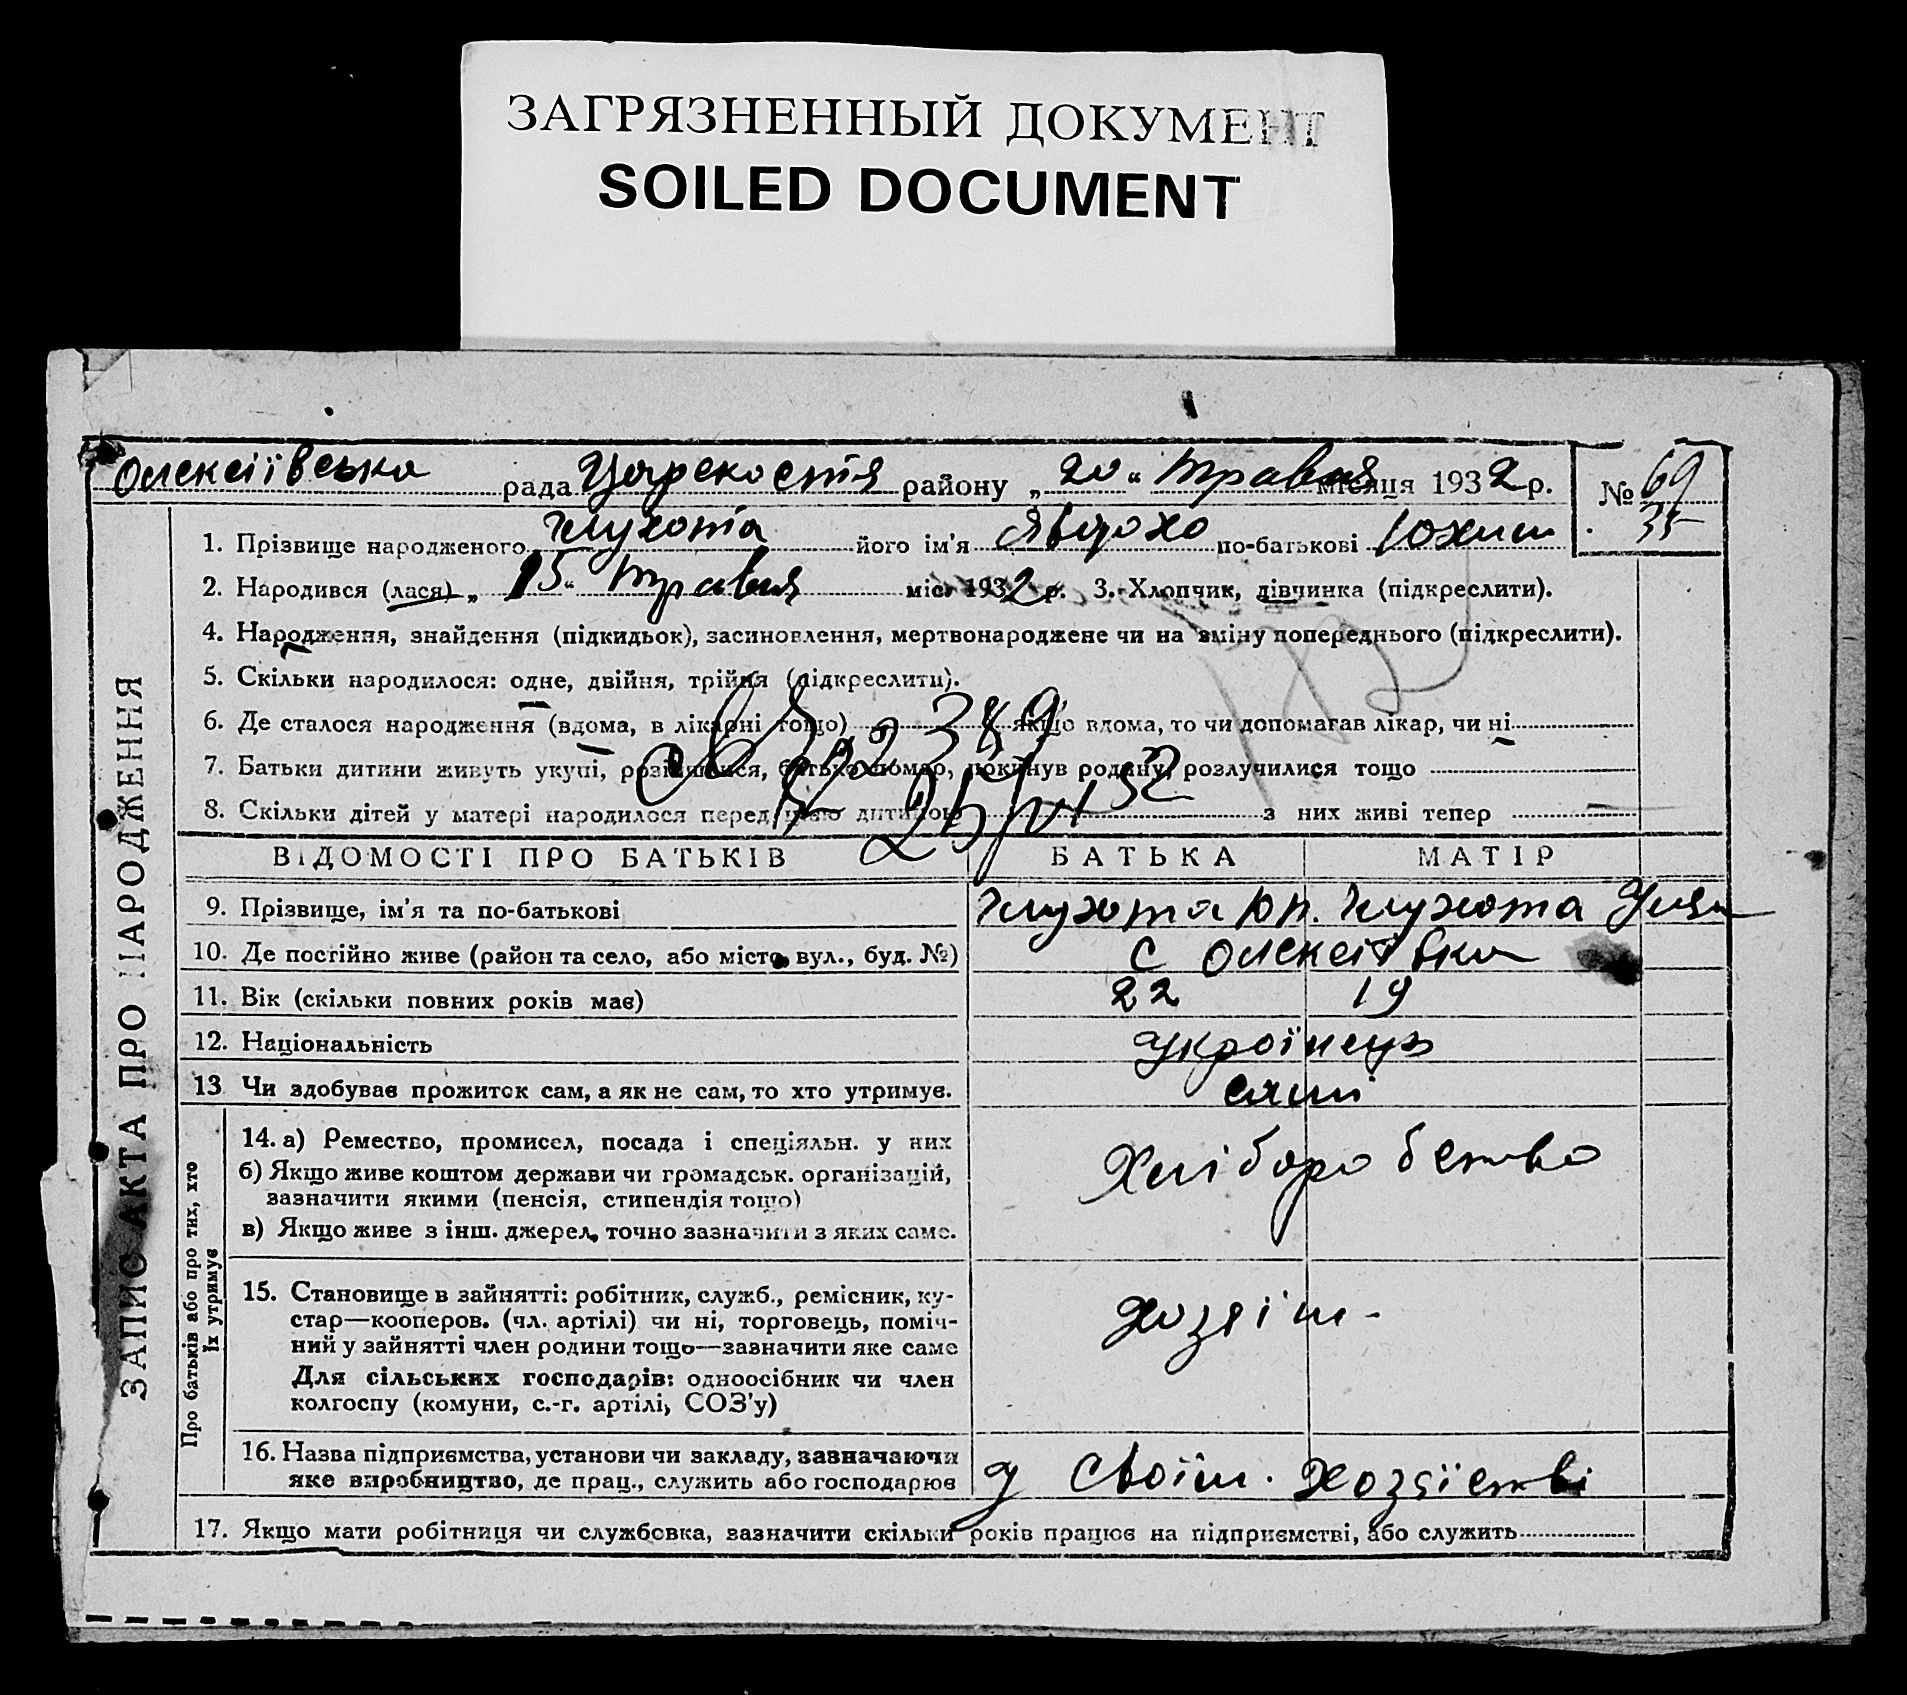 ЗАГРЯЗНЕННЫЙ ДОКУМЕНТ
SOILED DOCUMENT
Олексіївська рада району „20“ Травня місяця 1932 р. № 69
35
1. Прізвище народженого його ім'я Явдоха по-батькові Юхим
2. Народився (лася) „15“ Травня міс. 1932 р. 3. Хлопчик, дівчинка (підкреслити).
4. Народження, знайдення (підкидьок), засиновлення, мертвонароджене чи на зміну попереднього (підкреслити).
5. Скільки народилося: одне, двійня, трійня (підкреслити).
6. Де сталося народження (вдома, в лікарні тощо) якщо вдома, то чи допомагав лікар, чи ні
7. Батьки дитини живуть укупі, розійшлися, батько помер, покинув родину, розлучилися тощо
8. Скільки дітей у матері народилося перед цією дитиною з них живі тепер
ВІДОМОСТІ ПРО БАТЬКІВ БАТЬКА МАТІР
9. Прізвище, ім'я та по-батькові
10. Де постійно живе (район та село, або місто, вул., буд. №) с Олексіївка
11. Вік (скільки повних років має) 22 19
12. Національність Українець
13 Чи здобуває прожиток сам, а як не сам, то хто утримує. самі
14. а) Ремество, промисел, посада і спеціяльн. у них Хліборобство
б) Якщо живе коштом держави чи громадськ. організацій,
зазначити якими (пенсія, стипендія тощо)
в) Якщо живе з інш. джерел, точно зазначити з яких саме.
15. Становище в зайнятті: робітник, служб., ремісник, ку-
стар—кооперов. (чл. артілі) чи ні, торговець, поміч-
ний у зайнятті член родини тощо—зазначити яке саме
Для сільських господарів: одноосібник чи член
колгоспу (комуни, с.-г. артілі, СОЗ'у)
16. Назва підприємства, установи чи закладу, зазначаючи
яке виробництво, де прац., служить або господарює у своїм хозяїстві
17. Якщо мати робітниця чи службовка, зазначити скільки років працює на підприємстві, або служить
ЗАПИС АКТА ПРО НАРОДЖЕННЯ
Про батьків або про тих, хто
їх утримує